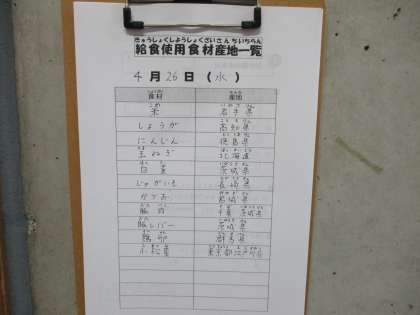 きゅうしょくしようしょくざいさんちいちらん
給食使用食材産地一覧
4月26日(水)
食材 産地
米 岩手県
しょうが 高知県
にんじん 徳島県
玉ねぎ 北海道
白菜 茨城県
じゃがいも 長崎県
かつお 宮城県
豚肉 千葉 茨城県
豚レバー 茨城県
鶏卵 群馬県
小松菜 東京都江戸川区